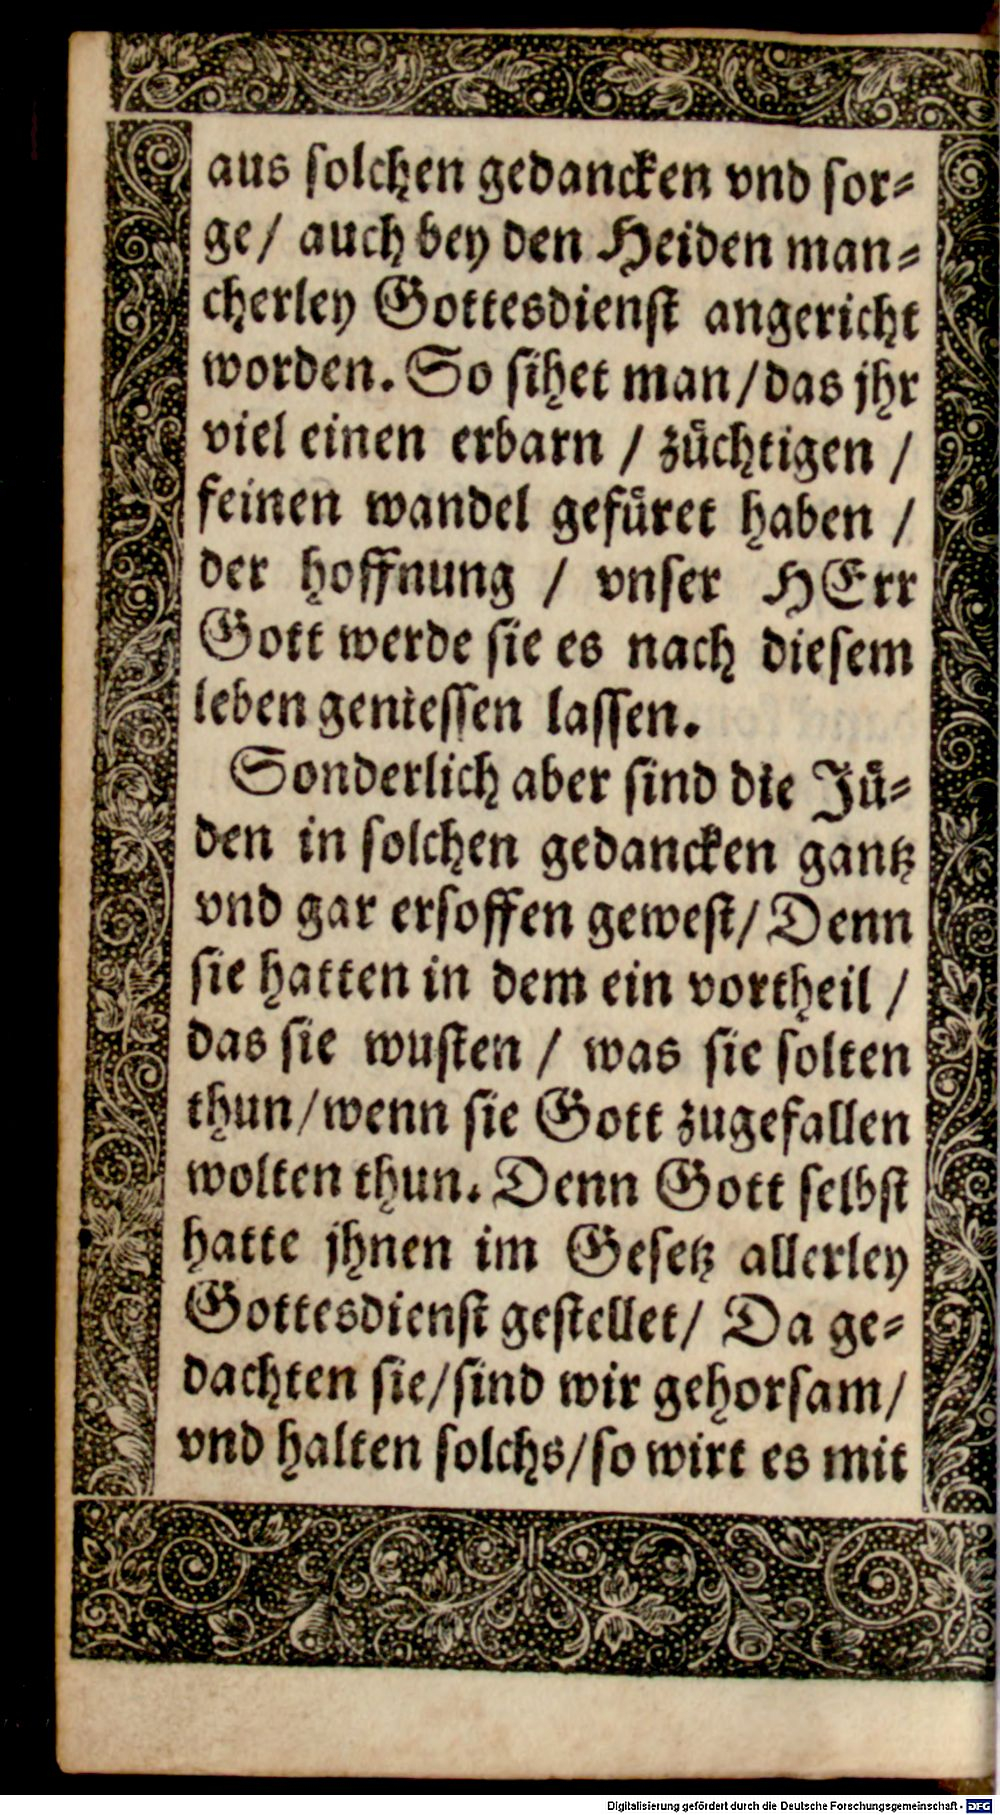 aus solchen gedancken vnd sor⸗
ge/ auch bey den Heiden man⸗
cherley Gottesdienst angericht
worden. So sihet man/das jhr
viel einen erbarn / zuͤchtigen /
feinen wandel gefuͤret haben /
der hoffnung / vnser HErr
Gott werde sie es nach diesem
leben geniessen lassen.
Sonderlich aber sind die Juͤ⸗
den in solchen gedancken gantz
vnd gar ersoffen gewest/ Denn
sie hatten in dem ein vortheil /
das sie wusten / was sie solten
thun/wenn sie Gott zugefallen
wolten thun. Denn Gott selbst
hatte jhnen im Gesetz allerley
Gottesdienst gestellet/ Da ge⸗
dachten sie/sind wir gehorsam/
vnd halten solchs/so wirt es mit
Digitalisierung gefördert durch die Deutsche Forschungsgemeinschaft - DFG